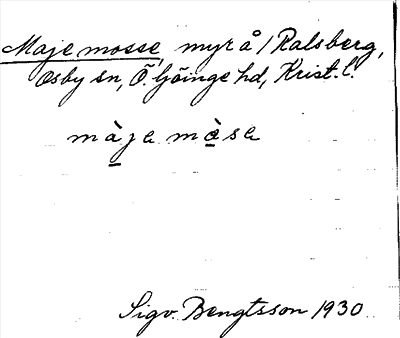 Maje mosse, myr å 1 Ralsberg,
Osby sn, Ö. Göinge hd, Krist. l.
màje mòse
Sigv. Bengtsson 1930